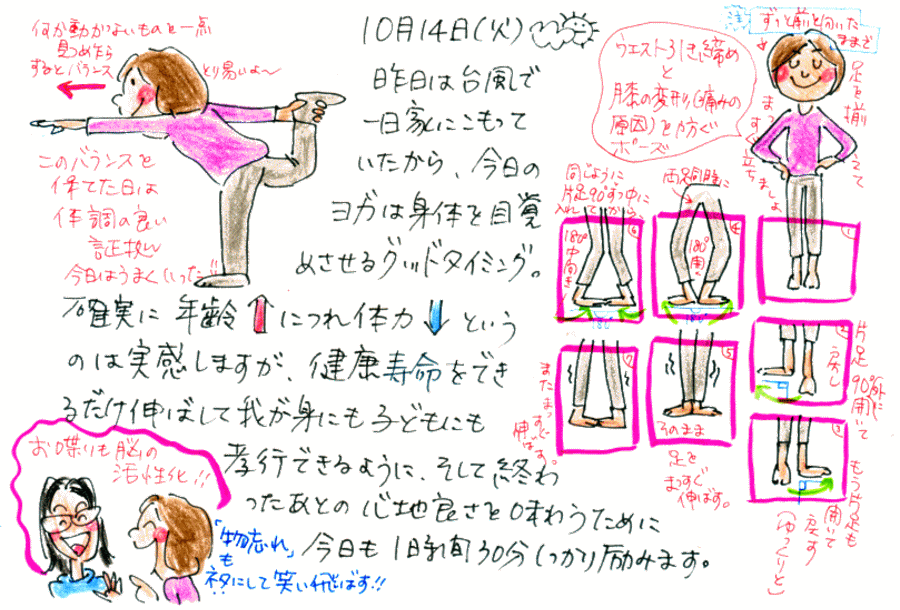 10月14日(火)
昨日は台風で
一日家にこもって
いたから、今日の
ヨガは身体を目覚
めさせるグッドタイミング。
確実に年齢↑につれ体力↓という
のは実感しますが、健康寿命をでき
るだけ伸ばして我が身にも子どもにも
孝行できるように、そして終わ
ったあとの心地良さを味わうために
今日も1時間30分しっかり励みます。
何か動かないものを一点
見つめたら
するとバランス
とり易いよ〜
このバランスを
保てた日は
体調の良い
証拠ん
今日はうまくいった!!
注
ずっと前を向いた
ままで
足を揃えて
まっすぐ立ちましょ
ウエスト引き締め
と
膝の変形(痛みの
原因)を防ぐ
ポーズ
①
②
片足90°外に開いて
戻し
③
もう片足も
開いて
戻す
(ゆっくりと)
④
両足同時に
180°開く
180°
⑤
そのまま
足を
まっすぐ
伸ばす。
⑥
同じように
片足90°ずつ中に
入れてから、
180°中向き
180°
⑦
またまっすぐ
伸ばす。
お喋りも脳の
活性化!!
「物忘れ」
も
ネタにして笑い飛ばす!!